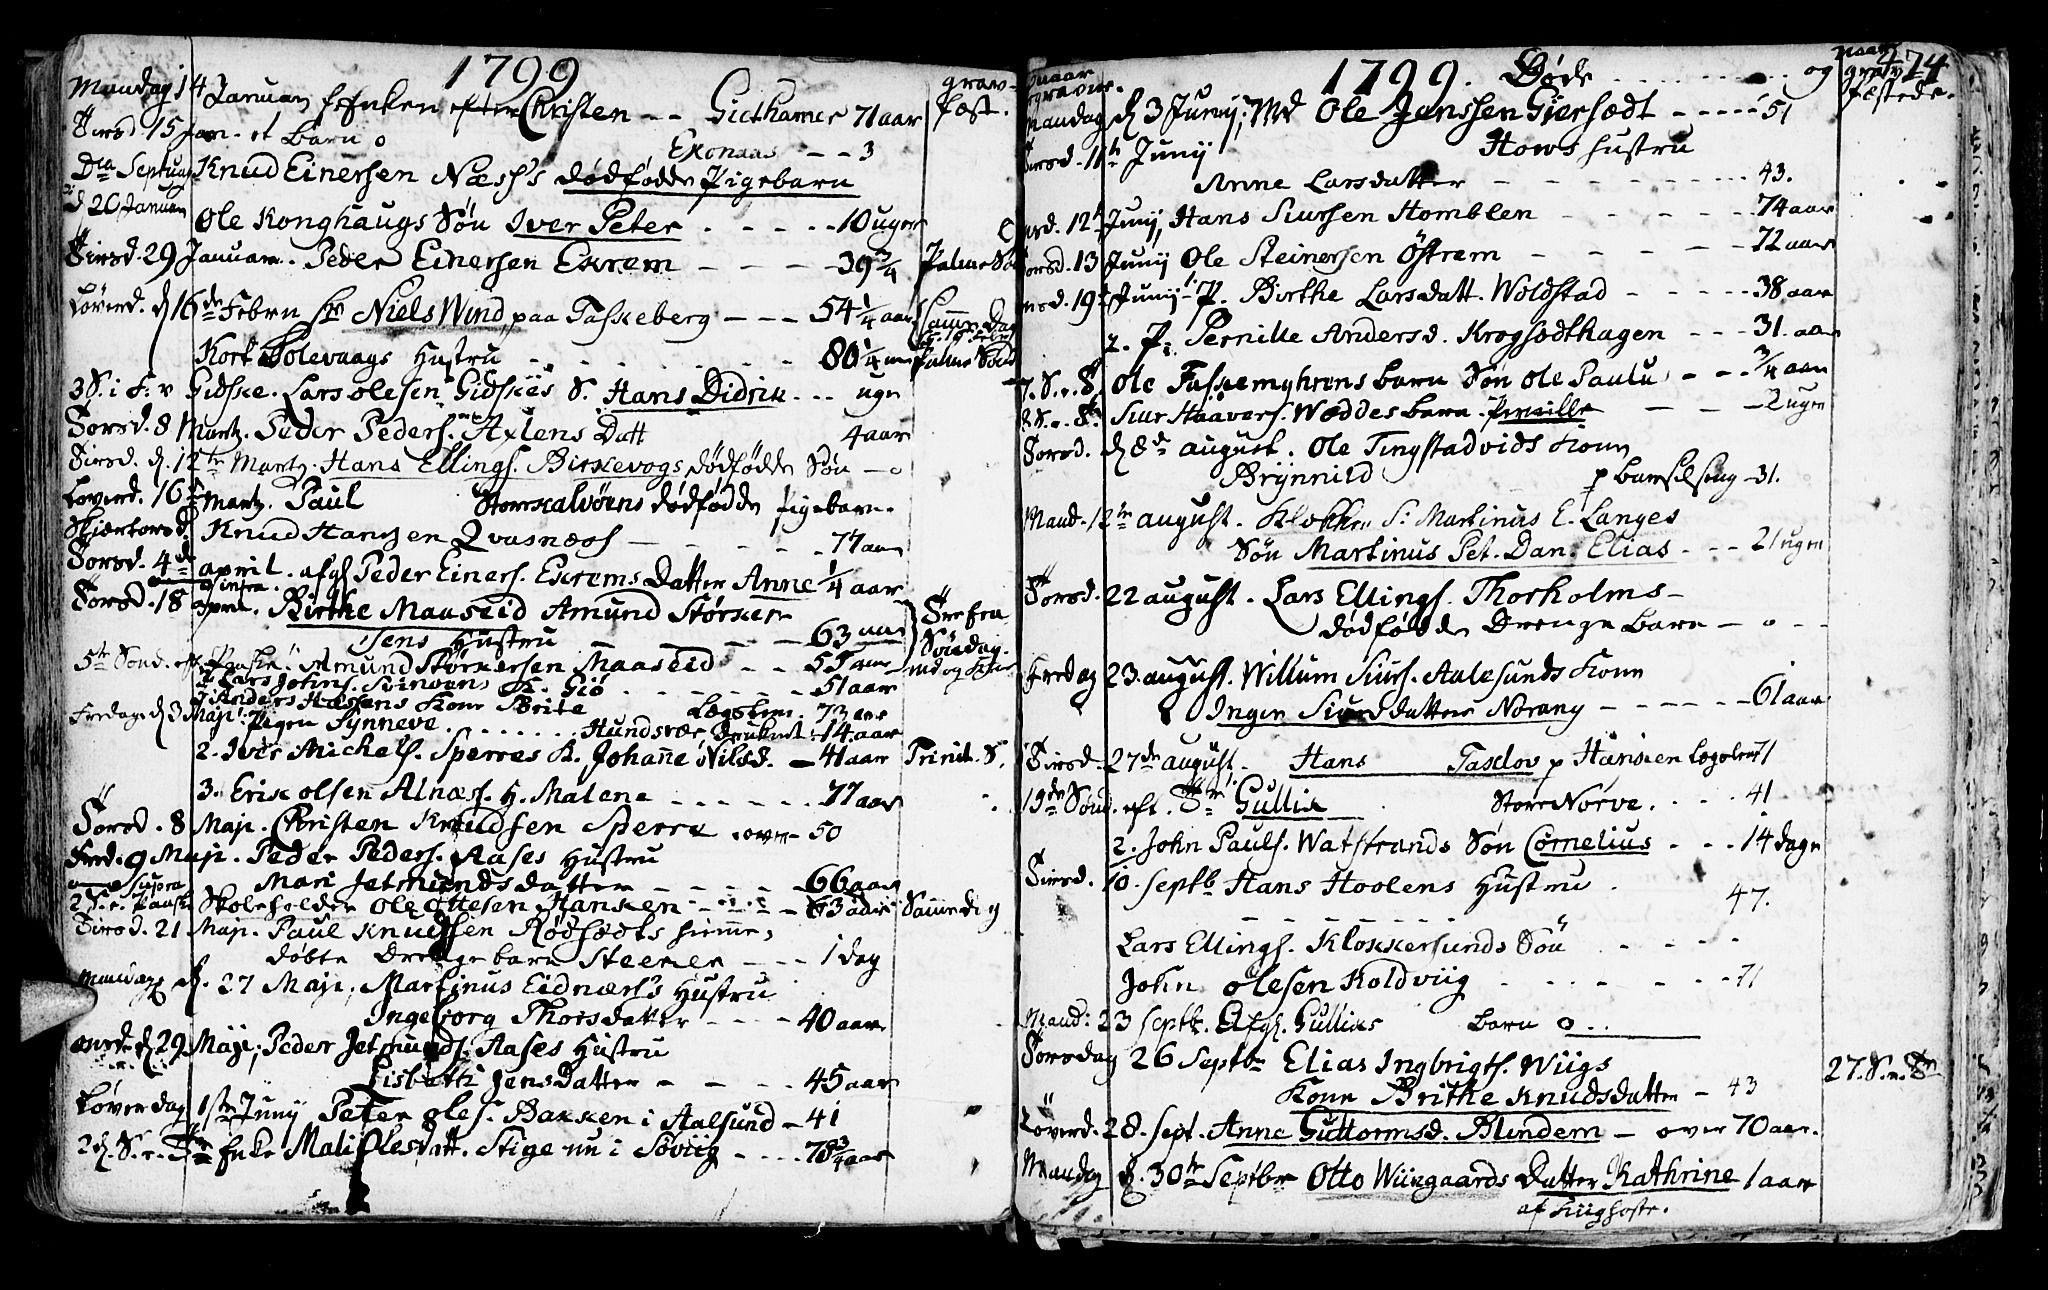 1799
grav-
fæst.
Mandag 14 Januari Enken Christen -- Giethamer 71 aar
Tirsd 15 Jan. et barn o Exonaas -- 3
Dca Septuag Knud Einersen Næss's dødfødde Pigebarn
d 20 Januari
Ole Konghaugs Søn Iver Peter . - - - - 10 uger
Tirsd. 29 Januari. Peder Einersen Exrem - - - - 39 3/4 Palme
Løverd. d 16de Febru Niels Wind paa Taskeberg --- 54 1/4 aar
Kort Solevaags Hustru 80 1/4 Palme
3 S. i F. Gidske. Lars Olesen Gidskes S. Hans Didrik --- uge
Torsd. 8 Martz. Peder Peders. Axlens Datt 4 aar
Tirsd. d. 12te Martz. Hans Ellings. Birkevogs dødfødde Søn - o
Løverd. 16 Martz. Paul Storkalvøens dødfødde Pigebarn.
Skjærtorsd. Knud Hansen Qvasnæss - - - 77 aar
Torsd. 4de april. afg. Peder Einers. Exrems Datter Anne 1/4 aar
Torsd. 18 april. Birthe Maaseid Amund Størker
sens Hustru - - - 63 aar
5te Sønd. eft. Paaske. Amund Størkersen Maaseid -- 55 aar
Lars Johns. K. Giø - - - 51 aar
Anders Hansens Kone Brite 73 aar
Fredag d 3 Maji. Pigen Synneve ..... Hundsvær druknet 14 aar
2. Iver Michels. Sperres K. Johanne Nilsd. - 41 aar Trinit. S.
3. Erik Olsen Alnæss. H. Malene ------ 77 aar
Torsd. 8 Maji. Christen Knudsen Sperre over - 50
Fred. 9 Maji. Peder Peders. Aases Hustru
Mari Jetmundsdatter - - - 66 aar
Skoleholder Ole Ottesen Hansken 63 aar Samme dag
Tirsd. 21 Maji. Paul Knudsen Rødsædts hjemme
døbte Drenge barn Steener --- 1 dag
Mandag d. 27 Maji, Martinus Eidnæss's Hustru
Ingeborg Thorsdatter ---- 40 aar
onsd. d 29 Maji, Peder Jetmunds. Aases Hustru
Lisbetti Jensdatter - - - 45 aar
Løverdag 1ste Junij Peter Oles. Bakken i Aalsund - 41
Enke Mali Olesdatt. Stige nu i Søvig ---- 78 3/4 aar
1799. Døde ........ og
naar
gravfæstede.
474
Mandag d 3 Junij, Md Ole Jenssen Giersædt ----- 51
Tirsd. 11te Junij Hows hustru
Anne Larsdatter - - - - 43.
12te Junij, Hans Siursen Homblen - - - - 74 aar
Torsd. 13 Junij Ole Steinersen Østrem - - - 72 aar
19de Junij 1. P. Birthe Larsdatt. Woldstad - - - - - 38 aar
2. P. Pernille Andersd. Krogsædthagen --- 31. aar
7. S. Ole Taskemyhrens barn Søn Ole Paulu -- 3/4 aar
Siur Haavers. Woddes barn. Pernille - - 2 uger
Torsd. d 8de august. Ole Tingstadvids Kone
Brynnild p barselseng - 31.
Mand. 12te august. Klokker S. Martinus E. Langes
Søn Martinus Pet. Dan. Elias - - - 21 uger
Torsd. 22 august. Lars Ellings. Thorholms-
dødfødde Drenge barn - o - -
Fredag 23. august. Willum Siurs. Aalesunds Kone
Inger Siursdatter Norang ------ 61 aar
Tirsd. 27de august. Hans Taslov p Hansken Lægslem 71
19de Sønd. eft. Gullik StorNorve. . . . 41
2. John Pauls. Watstrands Søn Cornelius . . . 14 dage
Tirsd. 10. Septb Hans Hoolens Hustru . 47.
Lars Ellings. Klokkersunds Søn - - - -
John Olesen Koldviig - - - - - 71
Mand: 23 Septb. Afg. Gulliks barn o..
Torsdag 26 Septb Elias Ingbrigts. Wiigs
Kone Brithe Knudsdatter - 43
Løverd. 28. Sept. Anne Guttormsd. Blindem - over 70 aar.
Mandag d. 30te Septbr Otto Wiingaards Datter Kathrine 1 aar
af Kiighoste.